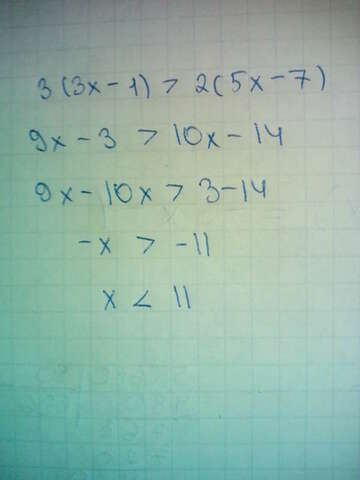 3(3x-1) > 2(5x-7)
9x-3 > 10x-14
9x-10x > 3-14
-x > -11
x < 11